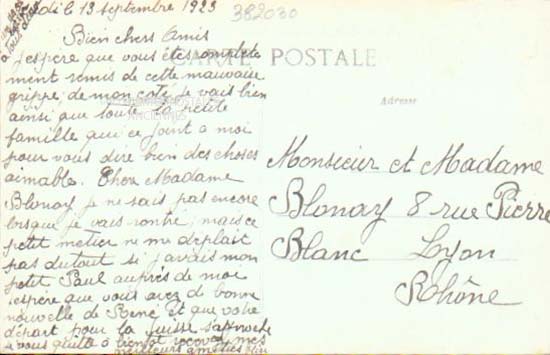 di le 13 septembre 1923
382030
Bien chers Amis
j'espère que vous êtes complete
ment remis de cette mauvaise
grippe; de mon coté je vais bien
ainsi que toute la petite
famille qui ce joint a moi
pour vous dire bien des choses
aimable. Chere Madame
Blonay je ne sais pas encore
lorsque je vais rentré; mais ce
petit metier ne me deplait
pas du tout si j'avais mon
petit Paul auprès de moi
j'espère que vous avez de bonne
nouvelle de René et que votre
départ pour la Suisse s'approche
je vous quitte à bientot recevez mes
meilleurs amitiés
CARTE POSTALE
Adresse
ANCIENNES
Monsieur et Madame
Blonay 8 rue Pierre
Blanc Lyon
Rhône